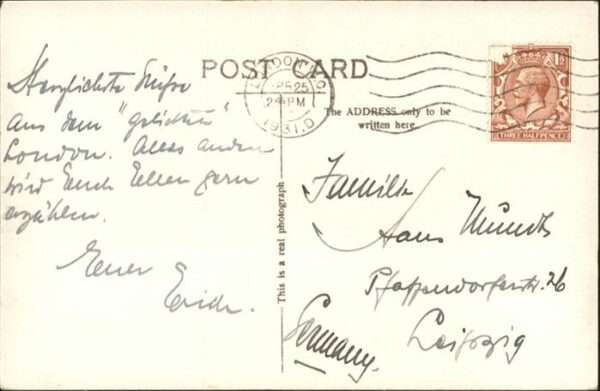 POST CARD
LONDON
25
2 - PM
1931.D
THREE HALFPENCE
The ADDRESS only to be
written here.
This is a real photograph
Herzlichste Grüße
aus dem "geliebten"
London. Alles andere
wird Euch Ellen gern
erzählen.
Euer
Erich.
Familie
Hans Mundt
Pfaffendorferstr. 26
Leipzig
Germany.